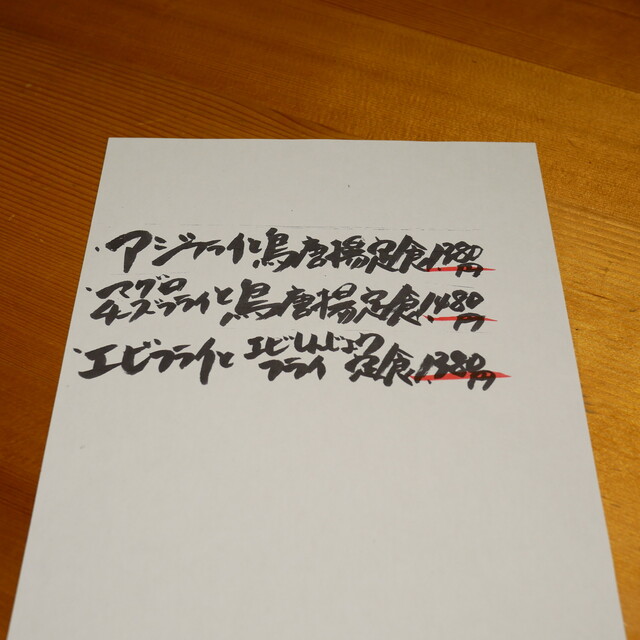 ・アジフライと鳥唐揚定食1,280円
・マグロチーズフライと鳥唐揚定食1,480円
・エビフライとエビしんじょうフライ定食1,380円